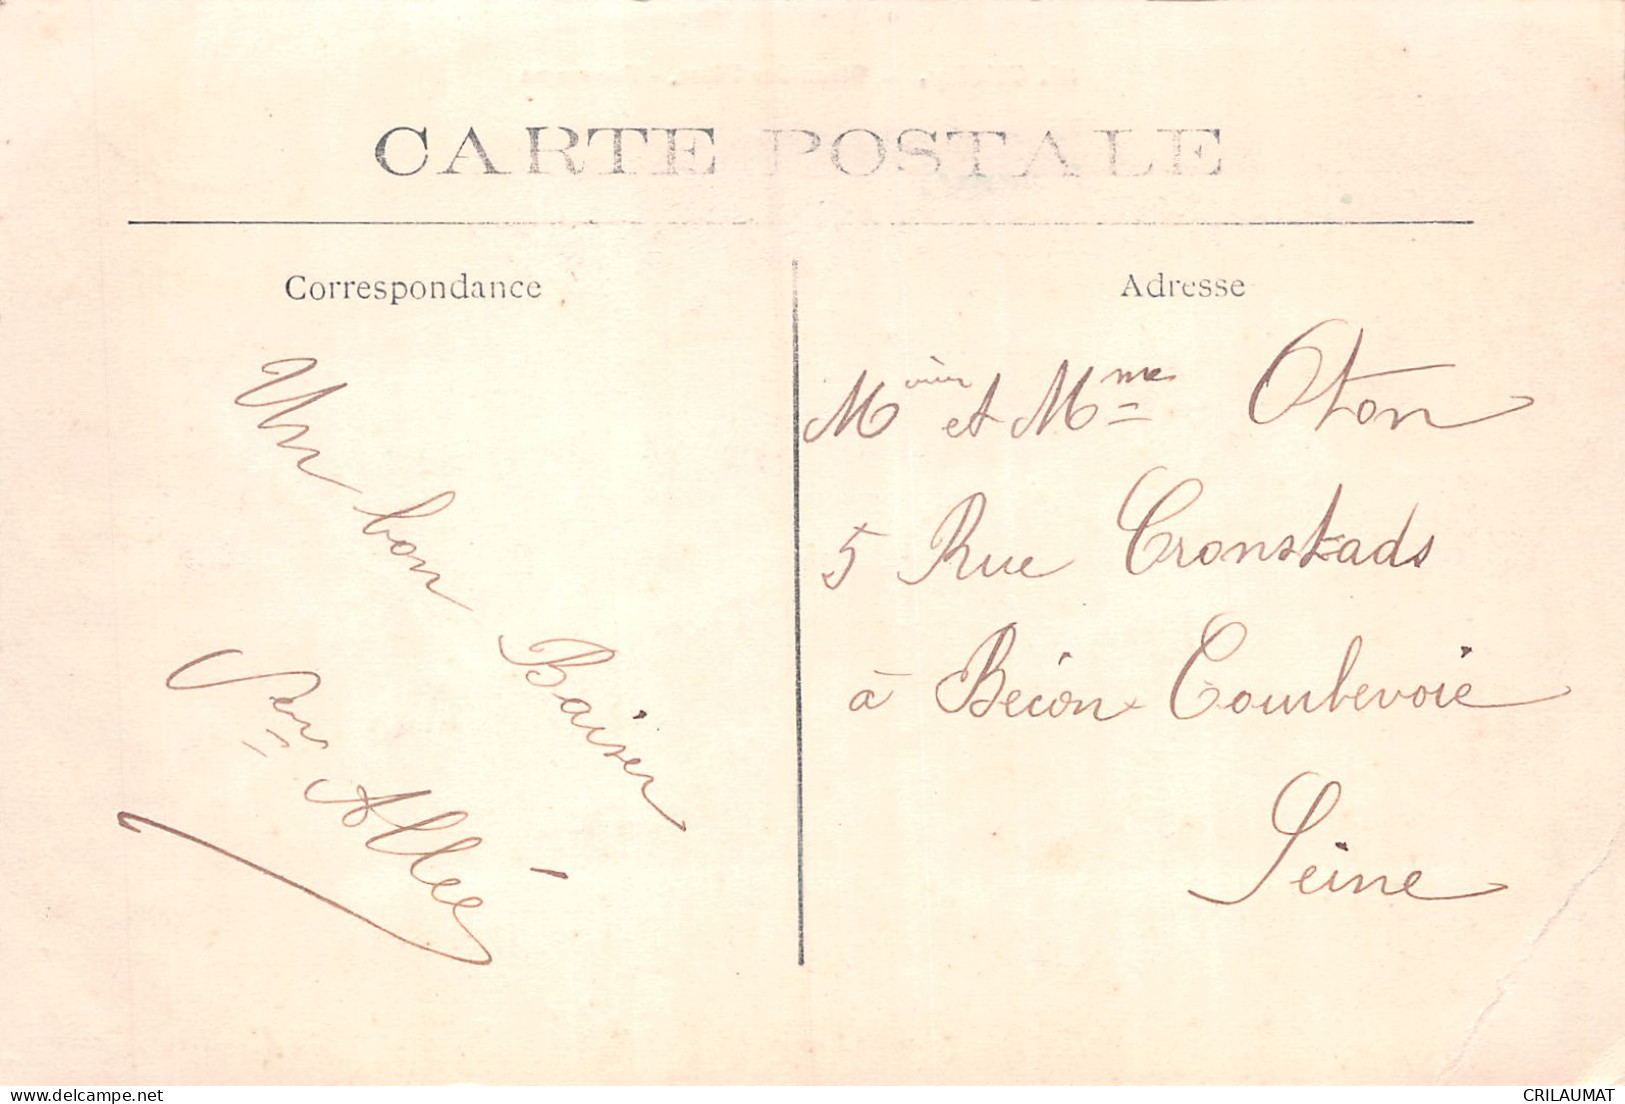 CARTE POSTALE
Correspondance
Un bon Baiser
Allée
Adresse
et Mme Oton
5 Rue Cronstads
à Becon Courbevoie
Seine
delcampe.net
CRILAUMAT